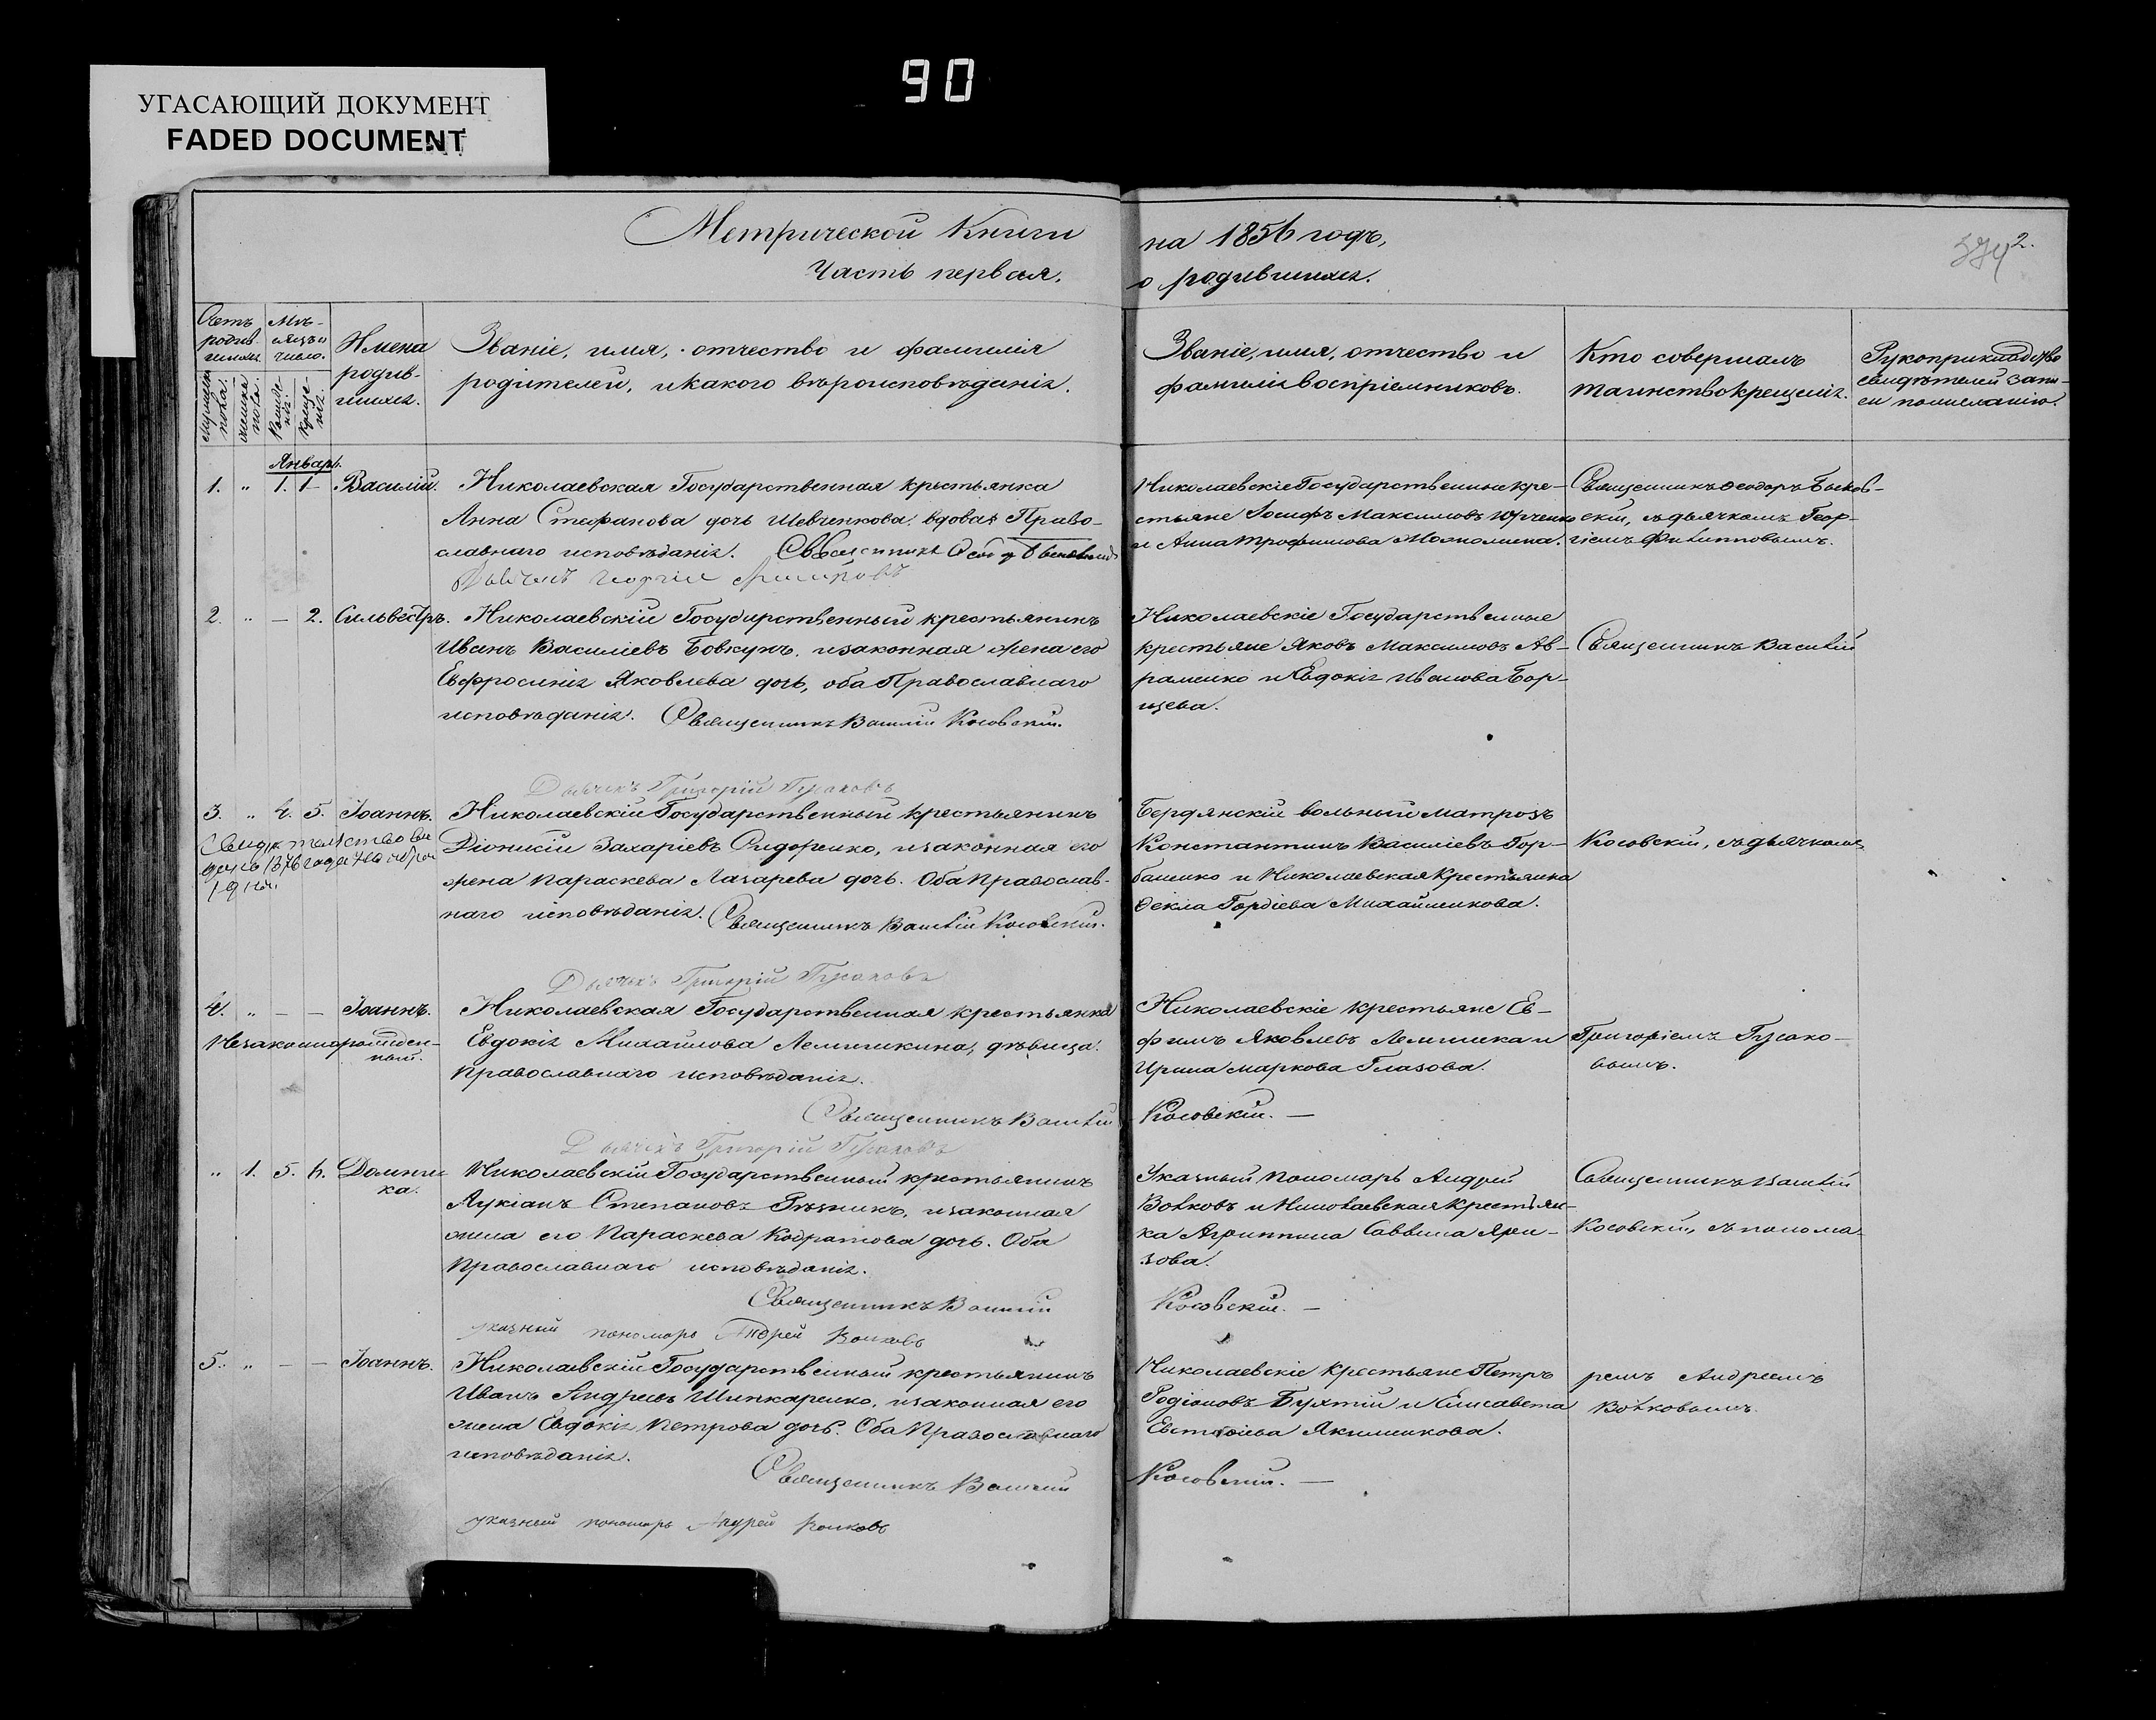 90
УГАСАЮЩИЙ ДОКУМЕНТ
FADED DOCUMENT
Метрической Книги на 1856 годъ,
2.
Часть первая, о родившихся.
Счетъ родив-шихся.
Мѣ-сяцъ и число.
мужеска пола.
женска пола.
Рожде-нія.
Креще-нія.
Имена родив-шихся.
Званіе, имя, отчество и фамилія
родителей, и какого вѣроисповѣданія.
Званіе, имя, отчество и
фамилія воспріемниковъ.
Кто совершалъ
таинство крещенія.
Рукоприкладство
свидѣтелей запи-
си по желанію.
Январь.
1. " 1. 1 Василій.
Николаевская Государственная крестьянка
Анна Стефанова дочь Шевченкова, вдова, Право-
славнаго исповѣданія. Священникъ
Дьячекъ Георгій
Николаевскіе Государственные кре-
стьяне Іосифъ Максимовъ Юрченко
и Анна Трофимова
Священникъ Феодоръ Быков-
скій, съ дьячкомъ Геор-
гіемъ Филипповымъ.
2. " — 2. Сильвестръ.
Николаевскій Государственный крестьянинъ
Иванъ Василіевъ Бовкунъ, и законная жена его
Евфросинія Яковлева дочь, оба Православнаго
исповѣданія. Священникъ Василій Косовскій.
Дьячекъ Григорій Гусаковъ
Николаевскіе Государственные
крестьяне Яковъ Максимовъ Ав-
раменко и Евдокія Иванова Бор-
щева.
Священникъ Василій
3. " 4. 5. Іоаннъ.
Свидѣтельство вы
дано 1876 года
Николаевскій Государственный крестьянинъ
Діонисій Захаріевъ Сидоренко, и законная его
жена Параскева Лазарева дочь. Оба Православ-
наго исповѣданія. Священникъ Василій Косовскій.
Дьячекъ Григорій Гусаковъ
Бердянскій вольный матрозъ
Константинъ Василіевъ Гор-
баненко и Николаевская Крестьянка
Фекла Гордіева Михайленкова.
Косовскій, съ дьячкомъ
4. " — — Іоаннъ.
Незаконнорожден-
ный.
Николаевская Государственная крестьянка
Евдокія Михайлова Лемишкина, дѣвица.
Православнаго исповѣданія.
Священникъ Василій Косовскій. —
Дьячекъ Григорій Гусаковъ
Николаевскіе крестьяне Ев-
фимъ Яковлевъ Лемишка и
Ирина Маркова Глазова.
Григоріемъ Гусако-
вымъ.
" 1. 5. 6. Домни-
ка.
Николаевскій Государственный крестьянинъ
Лукіанъ Степановъ Рѣзникъ, и законная
жена его Параскева Кодратова дочь. Оба
Православнаго исповѣданія.
Священникъ Василій Косовскій. —
указный пономарь Андрей Волковъ
Указный Пономарь Андрей
Волковъ и Николаевская Крестьян-
ка Агриппина Саввина
зова.
Священникъ Василій
Косовскій, съ понома-
5. " — — Іоаннъ.
Николаевскій Государственный крестьянинъ
Иванъ Андреевъ Шинкаренко, и законная его
жена Евдокія Петрова дочь. Оба Православнаго
исповѣданія.
Священникъ Василій Косовскій. —
указный пономарь Андрей Волковъ
Николаевскіе Крестьяне Петръ
Родіоновъ и Елисавета
Евстафіева Якименкова.
ремъ Андреемъ
Волковымъ.